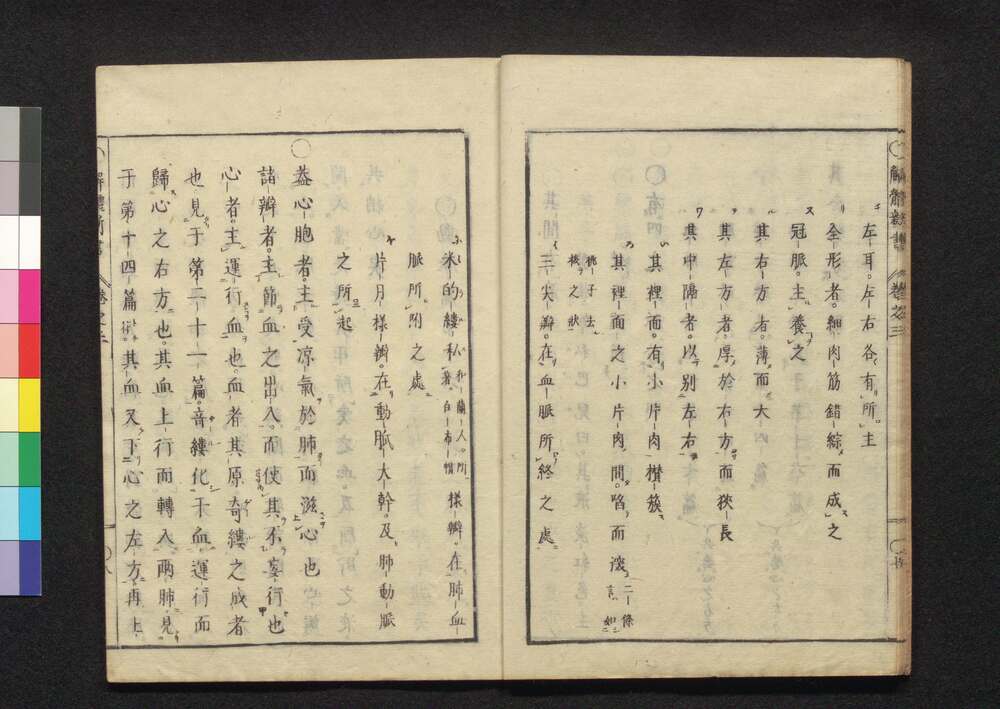 左耳。左右各有所主
全形者。細肉筋錯綜而成之
冠脈。主養之
其右方者。薄而大
其左方者。厚於右方而狹長
其中隔者。以別左右
其裡面。有小片肉櫕簇
其裡面之小片肉間。陷而淺二條言如
桃子去核之狀
三尖瓣。在血脈所終之處
米的縷私者和蘭人所著白布帽樣瓣。在肺血
脈所附之處
片月樣瓣。在動脈大幹。及肺動脈
之所起
〇蓋心胞者。主受凉氣於肺而滋心也
諸瓣者。主節血之出入。而使其不妄行也
心者。主運行血也。血者其原奇縷之成者
也見于第二十一篇。音縷化于血運行而
歸心之右方也。其血上行而轉入兩肺見
于第十四篇。其血又下心之左方再上
解體新書 卷之三